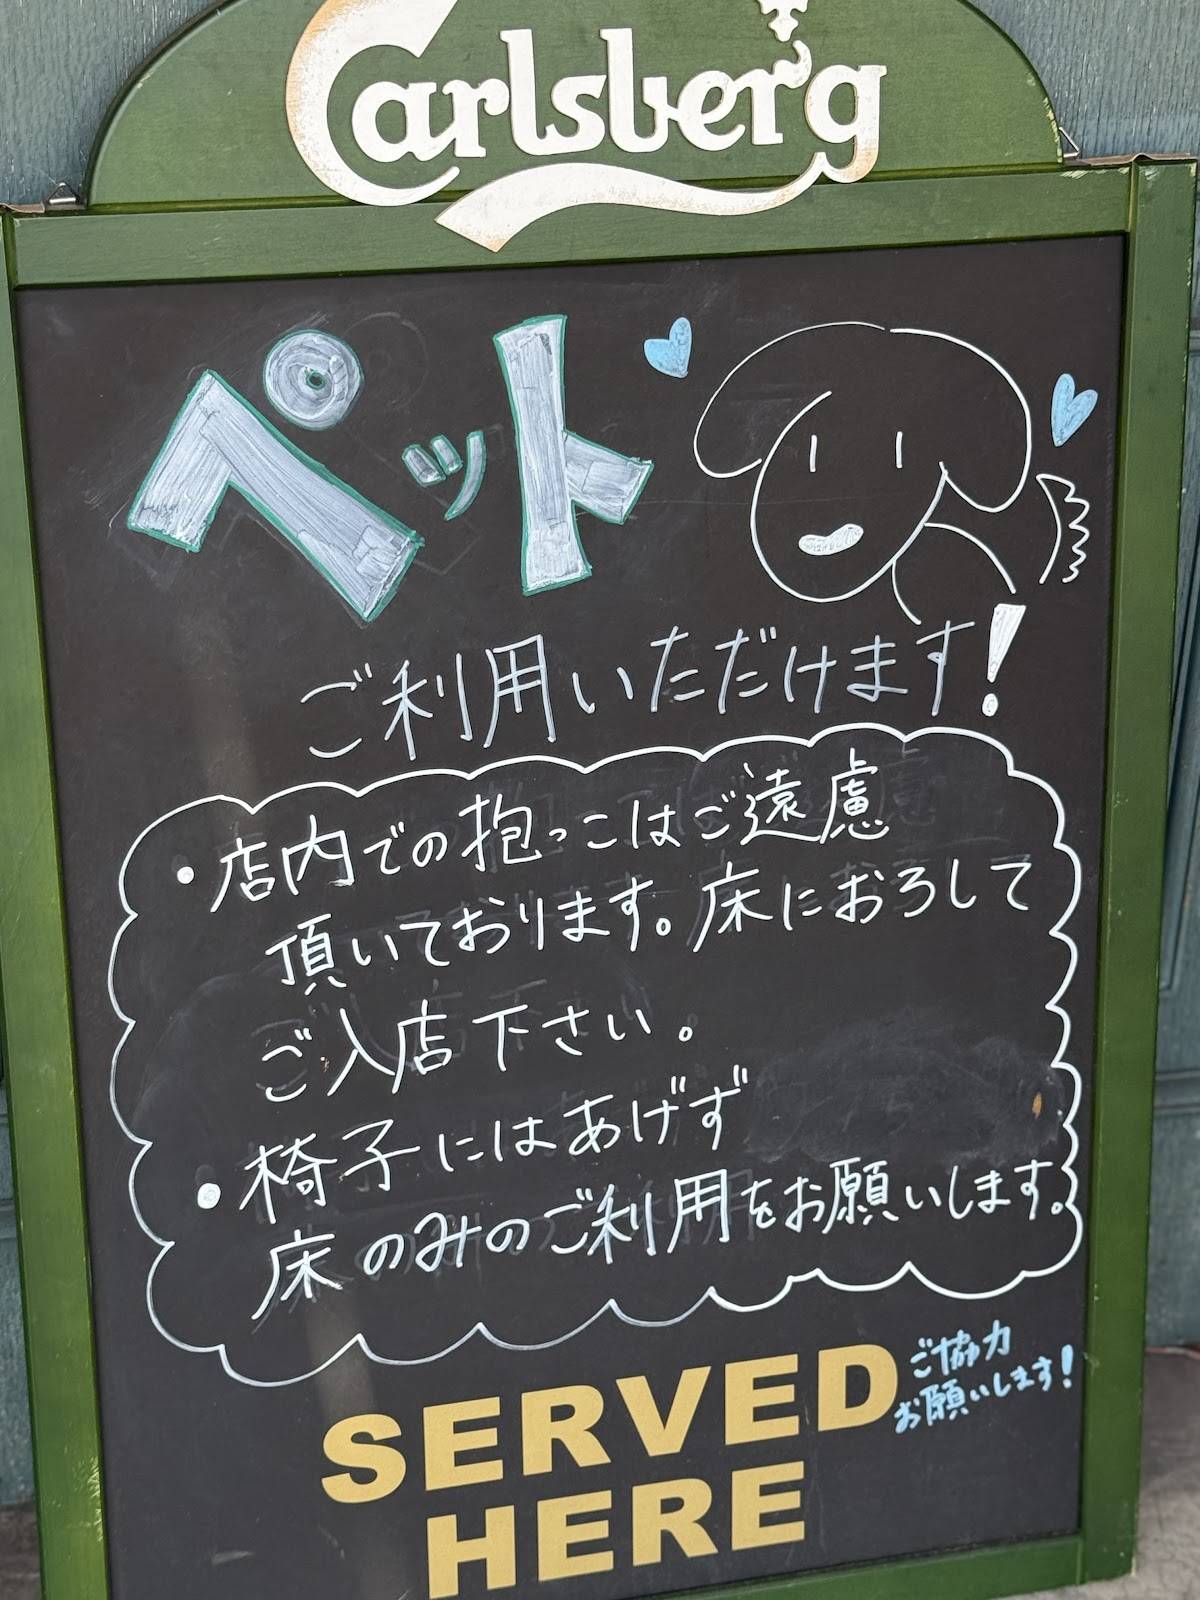 Carlsberg
ペット
ご利用いただけます!
・店内での抱っこはご遠慮
頂いております。床におろして
ご入店下さい。
・椅子にはあげず
床のみのご利用をお願いします。
SERVED
HERE
ご協力
お願いします!